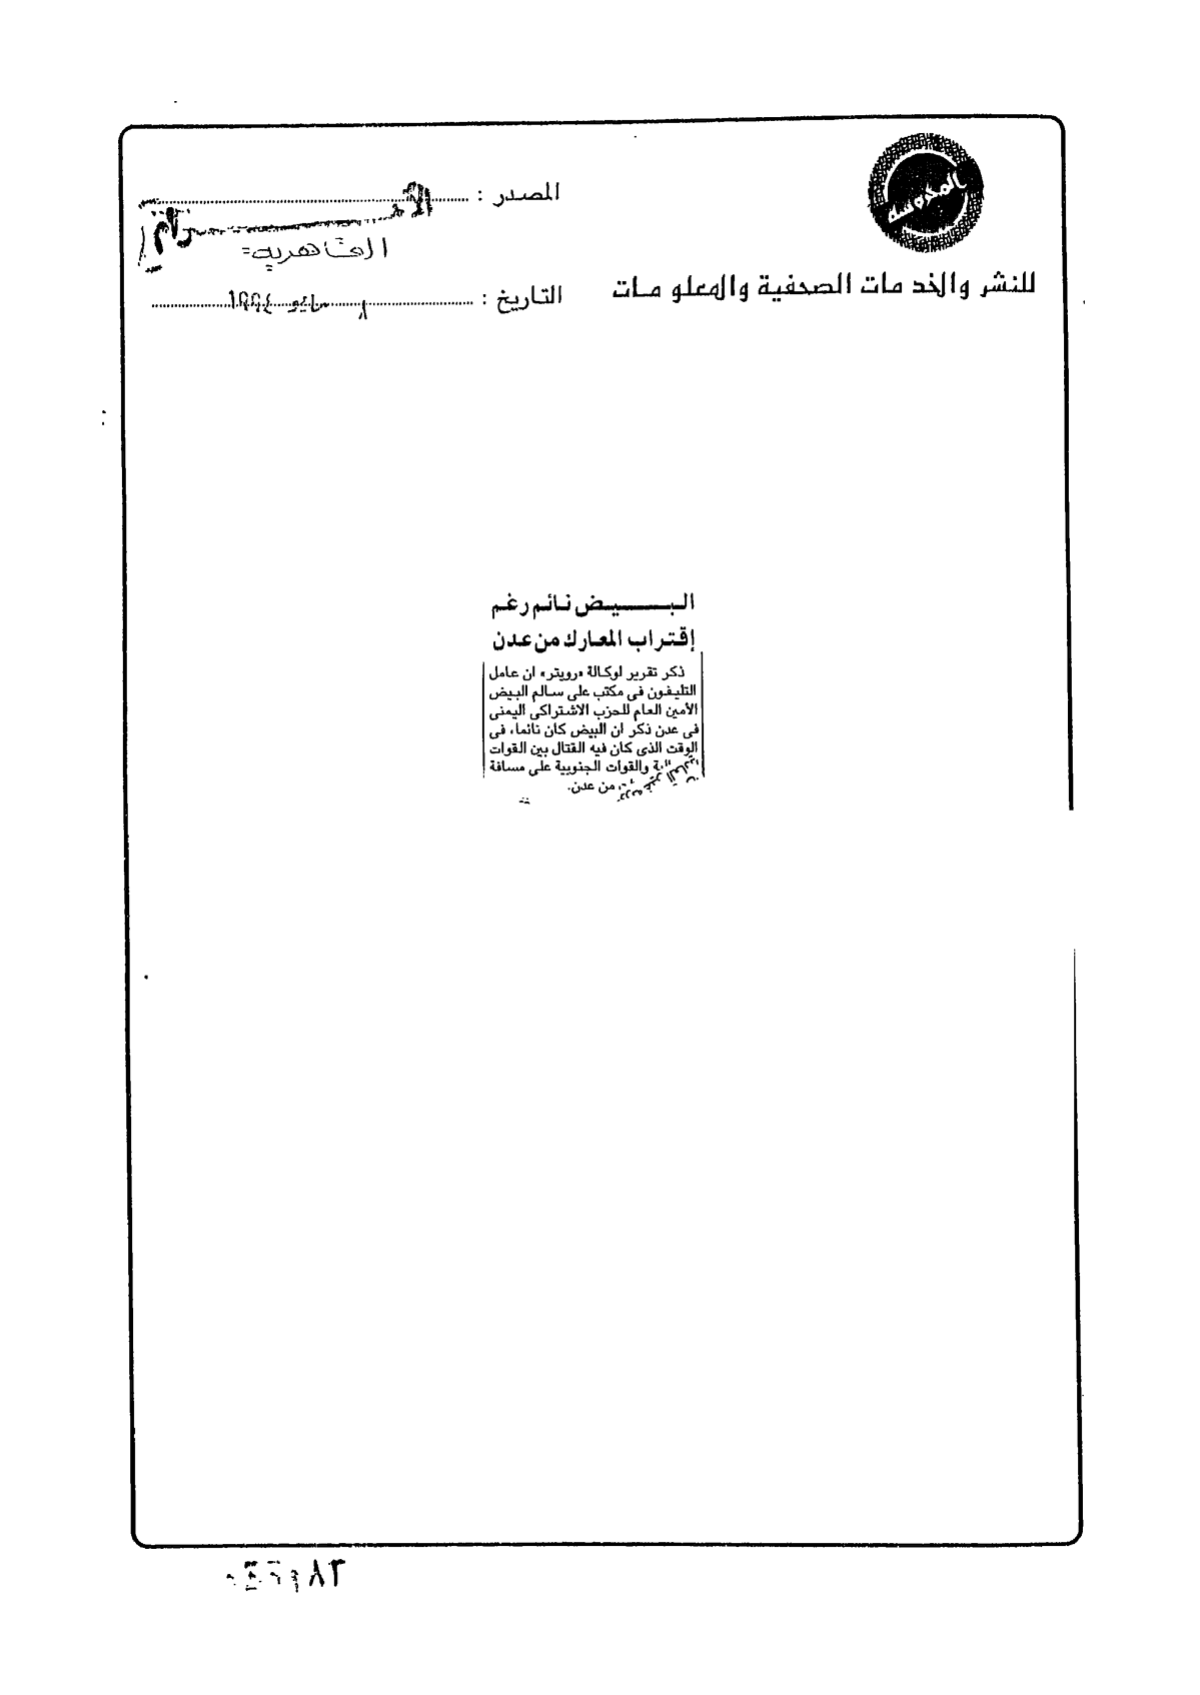 المحروسة
للنشر والخدمات الصحفية والمعلومات
المصدر :
القاهرية
التاريخ : ٨ مايو ١٩٩٤
البيض نائم رغم
إقتراب المعارك من عدن
ذكر تقرير لوكالة «رويتر» ان عامل
التليفون فى مكتب على سالم البيض
الأمين العام للحزب الاشتراكى اليمنى
فى عدن ذكر ان البيض كان نائما، فى
الوقت الذى كان فيه القتال بين القوات
والقوات الجنوبية على مسافة
من عدن.